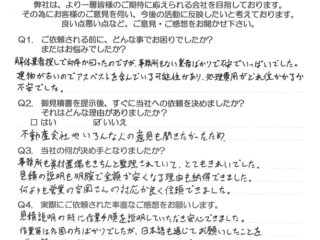 弊社は、より一層皆様のご期待に応えられる会社を目指しております。
その為にお客様のご意見を伺い、今後の活動に反映したいと考えております。
良い点悪い点など、ご意見・ご感想をお聞かせ下さい。
Q1. ご依頼される前に、どんな事でお困りでしたか？
またはお悩みでしたか？
解体業者探しで何件か回ったのですが、事務所もない業者ばかりで不安でいっぱいでした。
建物が古いのでアスベストを含んでいる可能性があり、処理費用がどれ位かかるか
不安でした。
Q2. 御見積書を提示後、すぐに当社への依頼を決めましたか？
それはどんな理由がありましたか？
□ はい ☑ いいえ
不動産会社やいろんな人の意見も聞きたかったため
Q3. 当社の何が決め手となりましたか？
事務所も資材置場もきちんと整理されていて、とてもきれいでした。
見積の説明も明確で金額が安くなる理由も納得できました。
何よりも営業の吉岡さんの対応が良く信頼できました。
Q4. 実際にご依頼された率直なご感想をお願いします。
見積説明の時に作業手順を説明していただき安心できました。
作業員は外国の方ばかりでしたが、日本語も通じてお願いしたことを